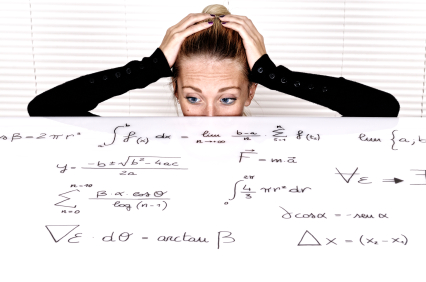 sβ = 2πr² ∫ₐᵇ f(x) dx = lim n→∞ b-a/n Σ i=1 n f(ti) lim {a;b
y = -b ± √b² - 4ac / 2a F⃗ = m·a⃗ ∀ε ⇒ ∃
Σ n=0 n=10 β·α·cosθ / log(n-1) ∫₀²π 4/3 πr² dr
∂cosα = -senα
∇ε · dθ = arctan β Δx = (x₂ - x₁)